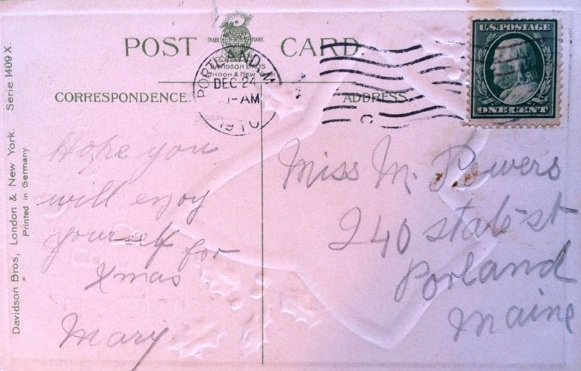 POST CARD
TRADE MARK
DAVIDSON BROS
LONDON & NEW
CORRESPONDENCE.
ADDRESS.
PORTLAND, M
DEC 24
-AM
1910
U.S. POSTAGE
ONE CENT
Davidson Bros, London & New York Serie 1409 X.
Printed in Germany
Hope you
will enjoy
yourself for
Xmas
Mary.
Miss M. Powers
240 state st
Porland
Maine